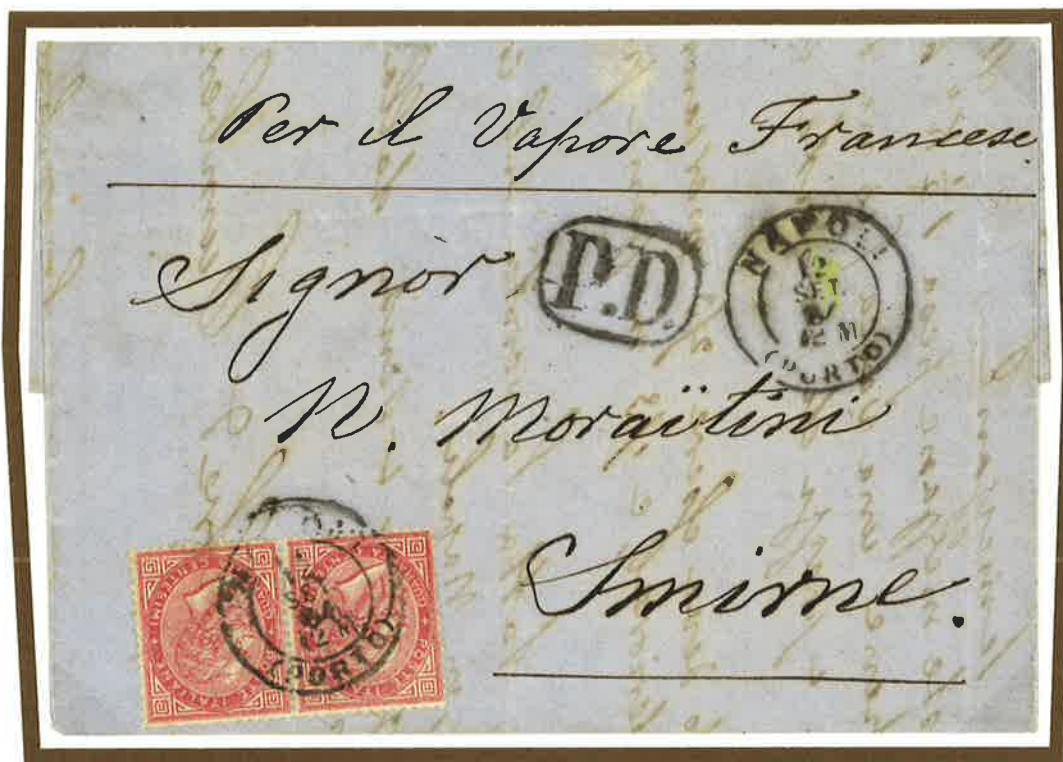 Per il Vapore Francese
Signor
P.D.
NAPOLI
(PORTO)
N. Moraïtini
Smirne.
(PORTO)